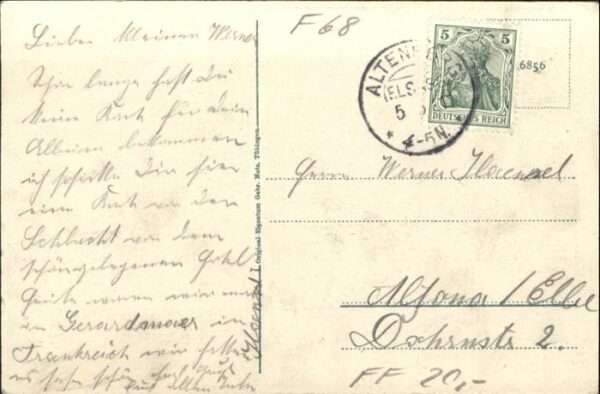 Lieber kleiner Werner
Schon lange hast Du
keine Karte für dein
Album bekommen
ich schicke Dir hier
eine Karte von der
Schlucht von dem
schöngelegenen Hotel
Heute waren wir
in Gerardmer in
Frankreich wir
es sehr schön
F 68
ALTEN
(ELS
5
4-5N.
5 5
DEUTSCHES REICH
6856
Original Eigentum Gebr. Metz, Tübingen.
Herrn Werner
Altona/Elbe
Dohrnstr 2.
FF 20,-